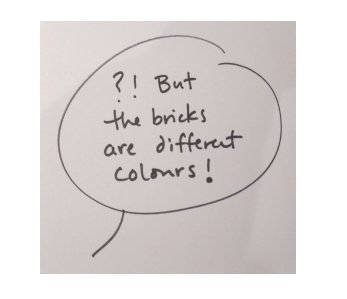 ?! But
the bricks
are different
colours!